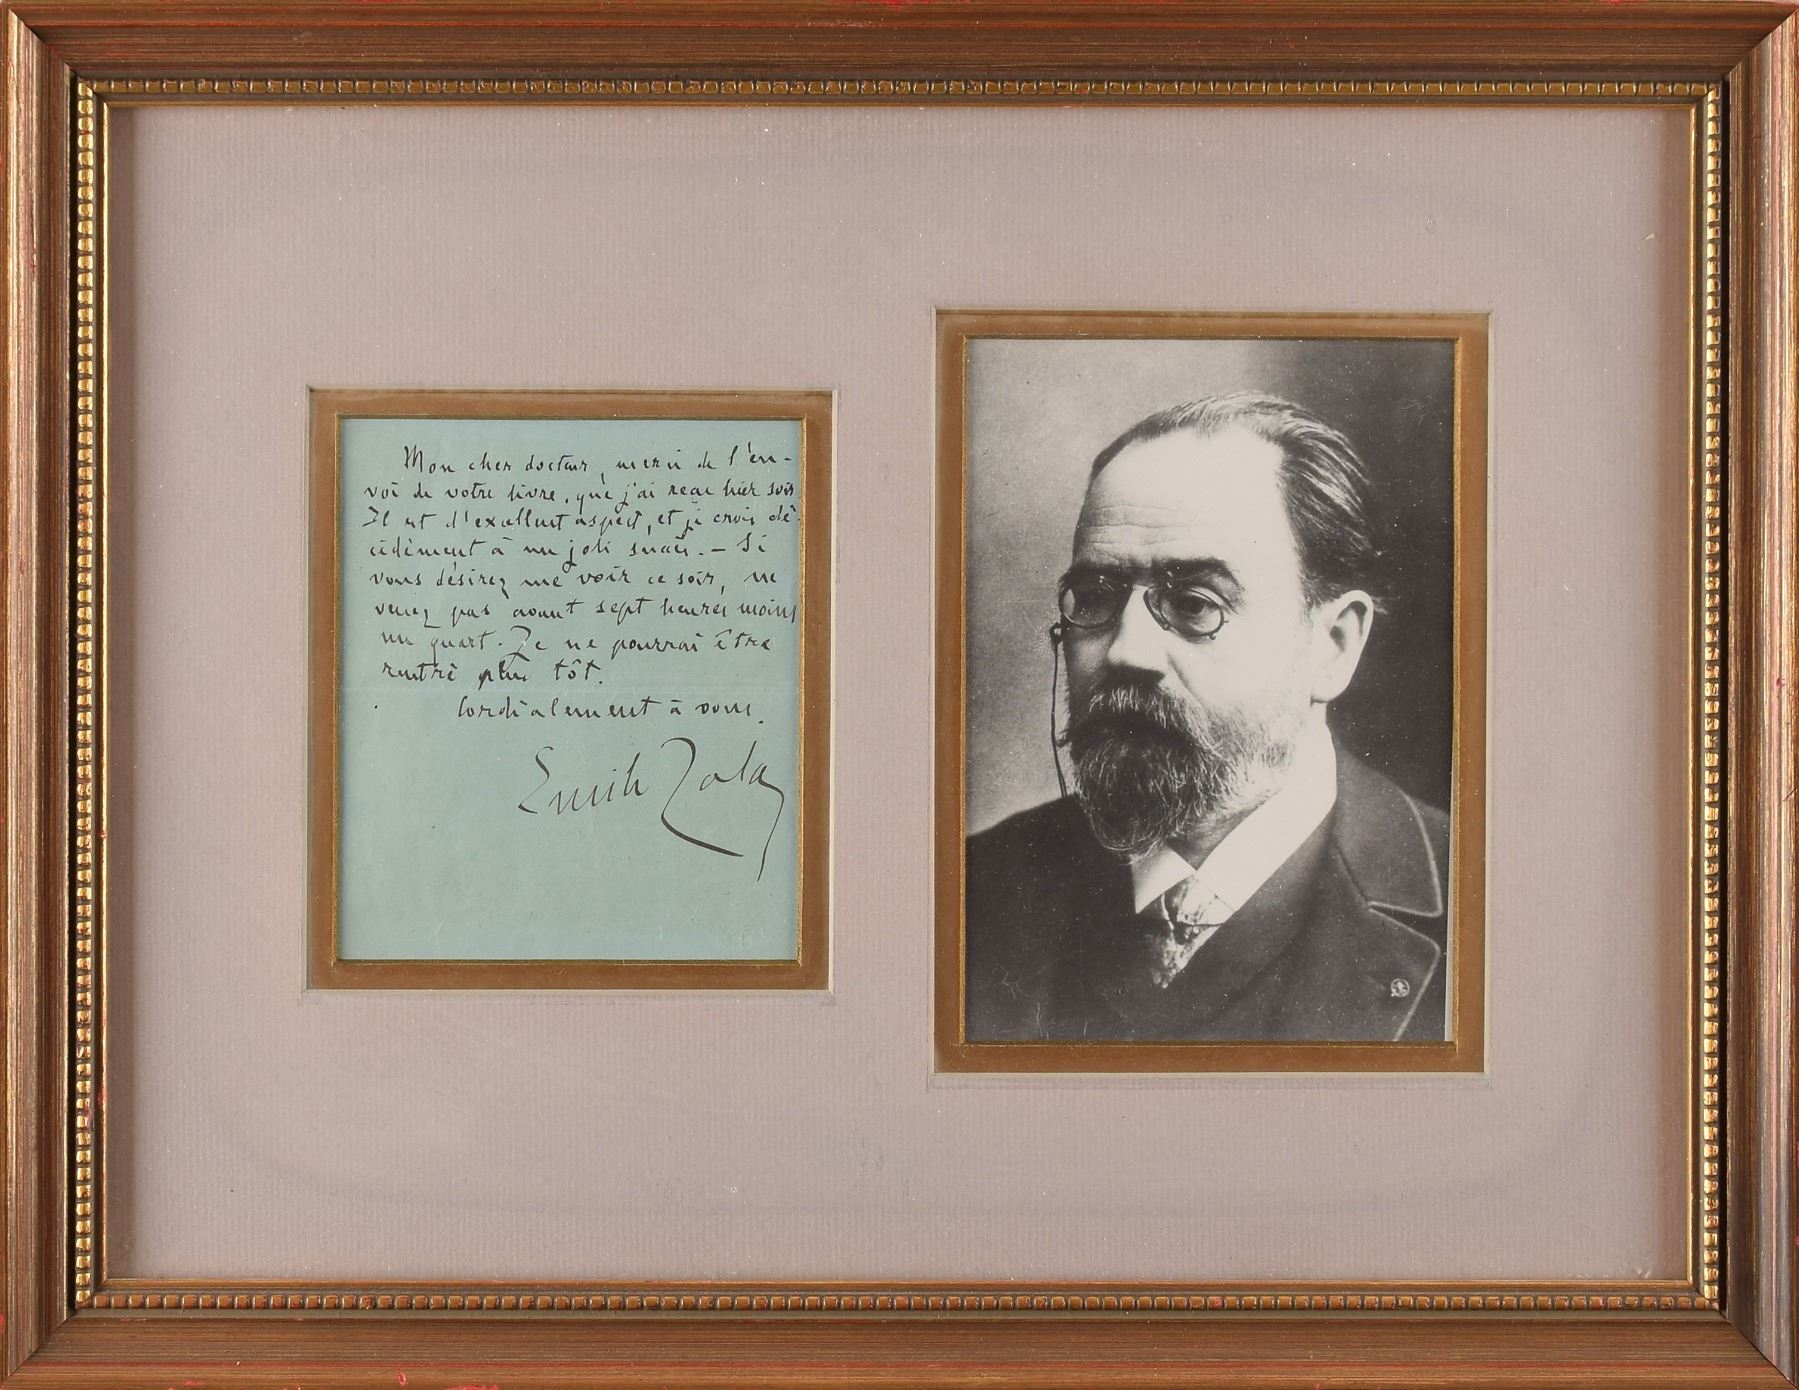 Mon cher docteur, merci de l'en-
voi de votre livre, que j'ai reçu hier soir.
Il est d'excellent aspect, et je crois dé-
cidément à un joli succès. — Si
vous désirez me voir ce soir, ne
venez pas avant sept heures moins
un quart. Je ne pourrai être
rentré plus tôt.
Cordialement à vous.
Emile Zola